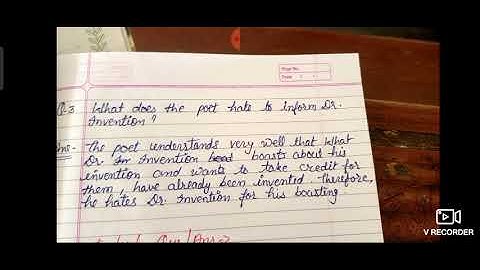 Page No.
Date
Q.3 What does the poet hate to inform Dr.
Invention?
Ans- The poet understands very well that What
Dr. Im Invention boasts about his
invention and wants to take credit for
them, have already been invented. Therefore,
he hates Dr. Invention for his boasting
V RECORDER